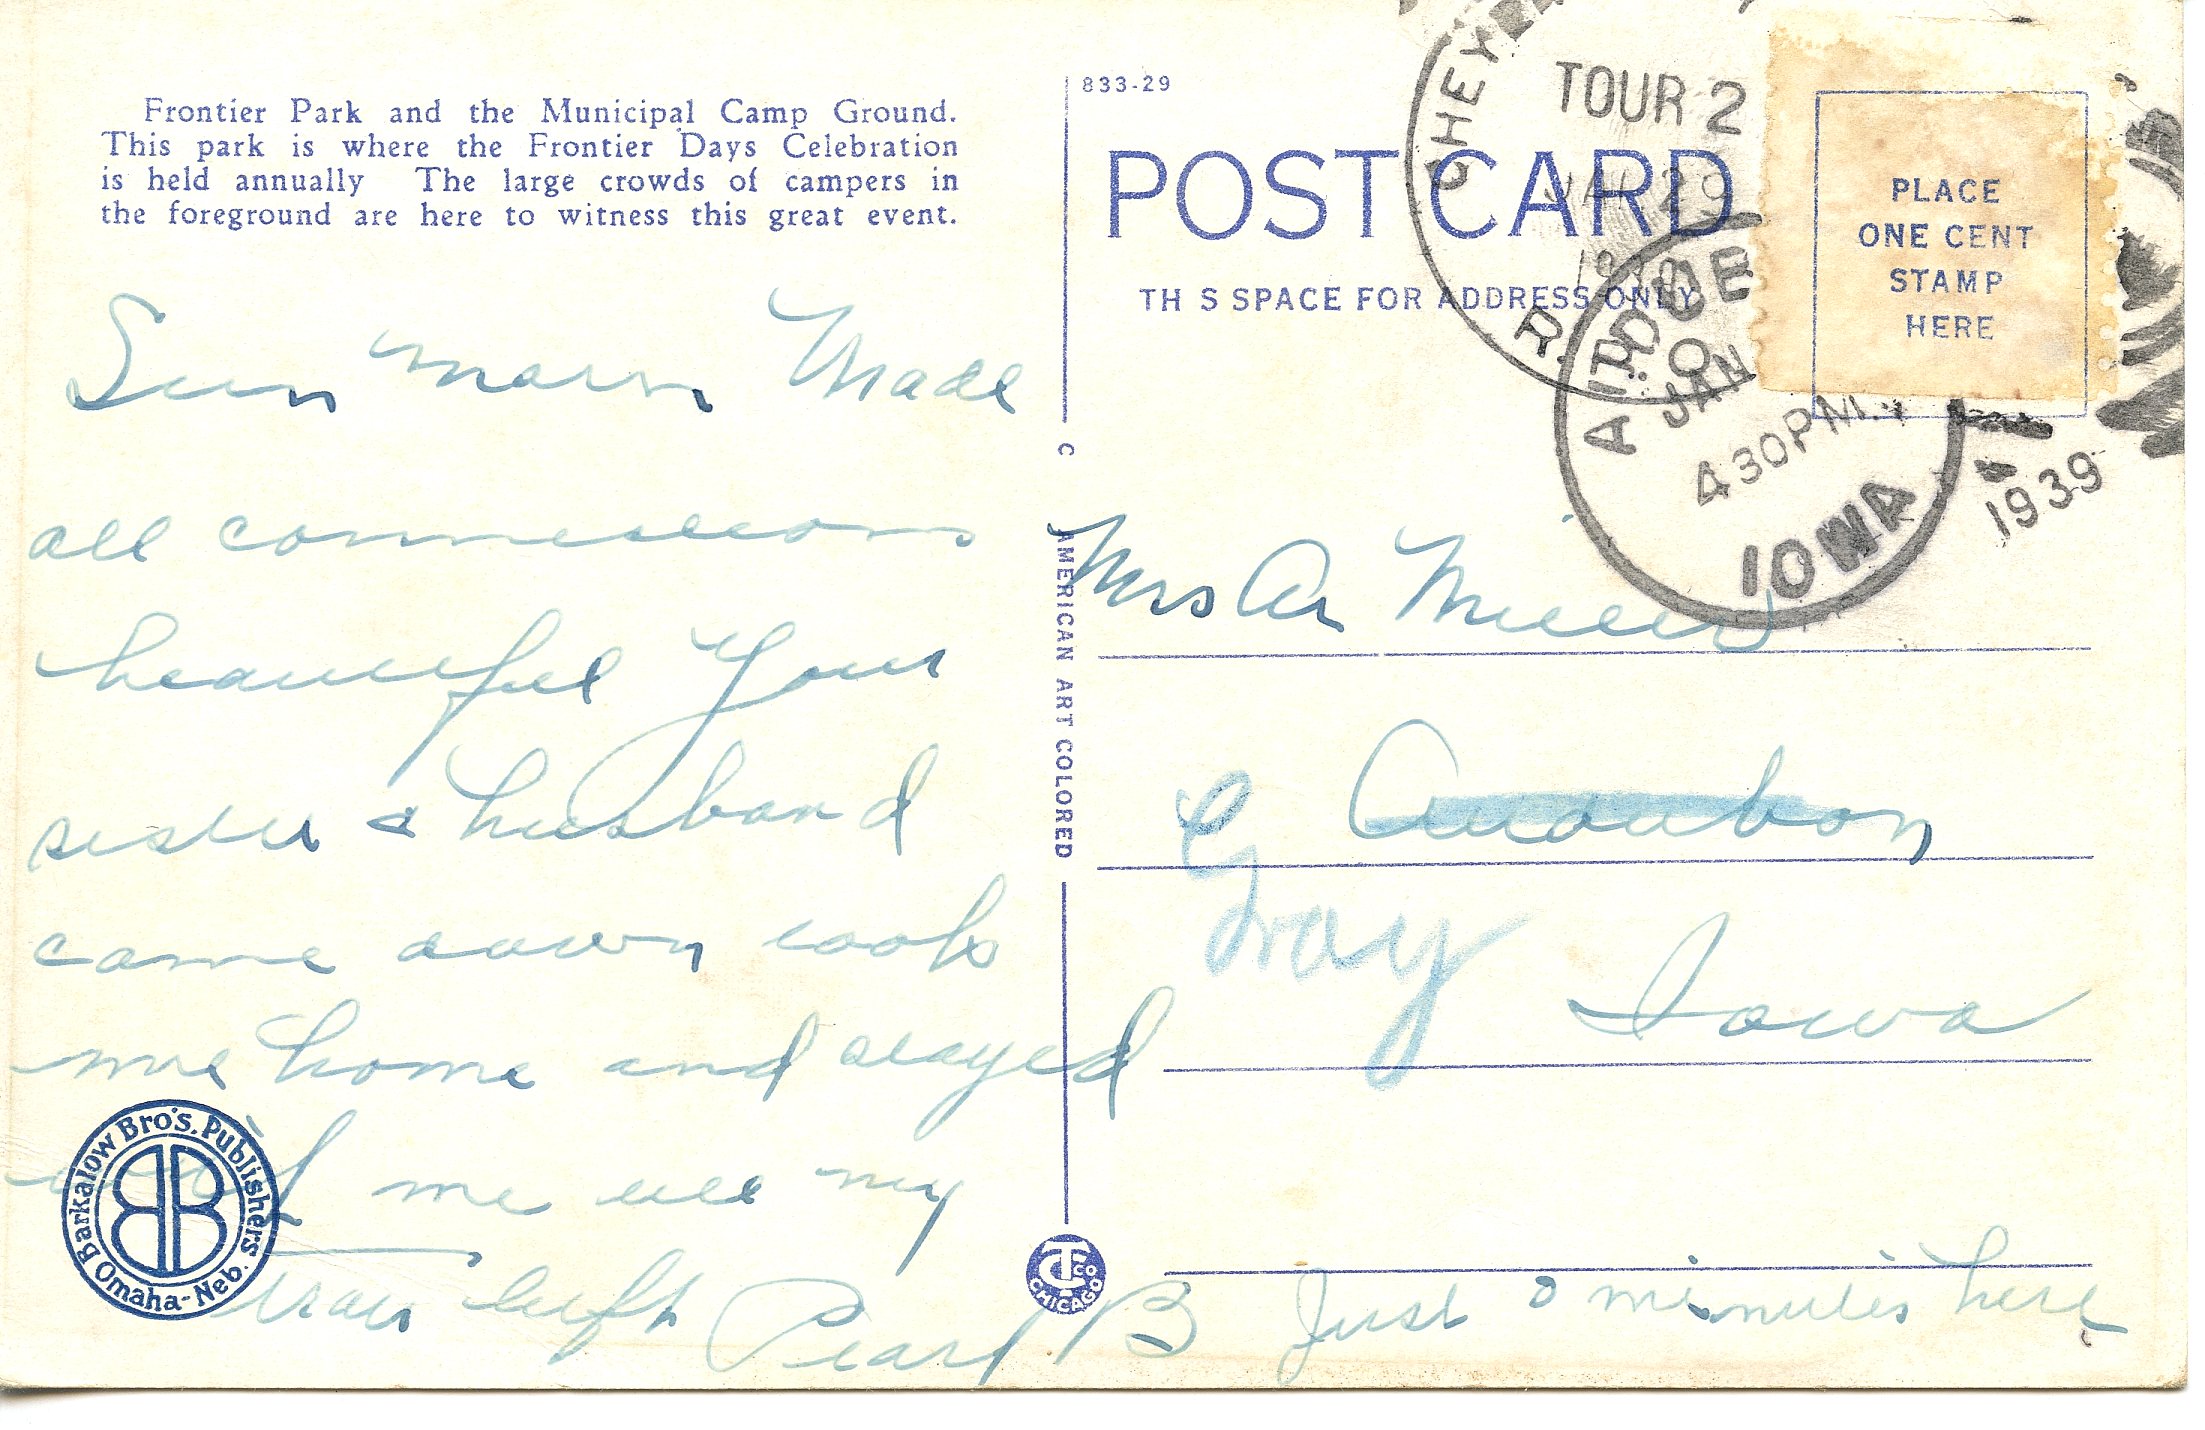 Frontier Park and the Municipal Camp Ground.
This park is where the Frontier Days Celebration
is held annually The large crowds of campers in
the foreground are here to witness this great event.
Sun morn Made
all connections
beautiful Your
sister & husband
came down took
me home and stayed
with me till my
train left Pearl B
Just minutes here
Barkalow Bro's. Publishers
Omaha-Neb.
BB
833-29
POST CARD
TH S SPACE FOR ADDRESS ONLY
C AMERICAN ART COLORED
CT CO
CHICAGO
PLACE
ONE CENT
STAMP
HERE
TOUR 2
JAN 29
R.P.O.
AUDUBON
JAN
430PM
1939
IOWA
Mrs Miller
Audubon
Gray
Iowa